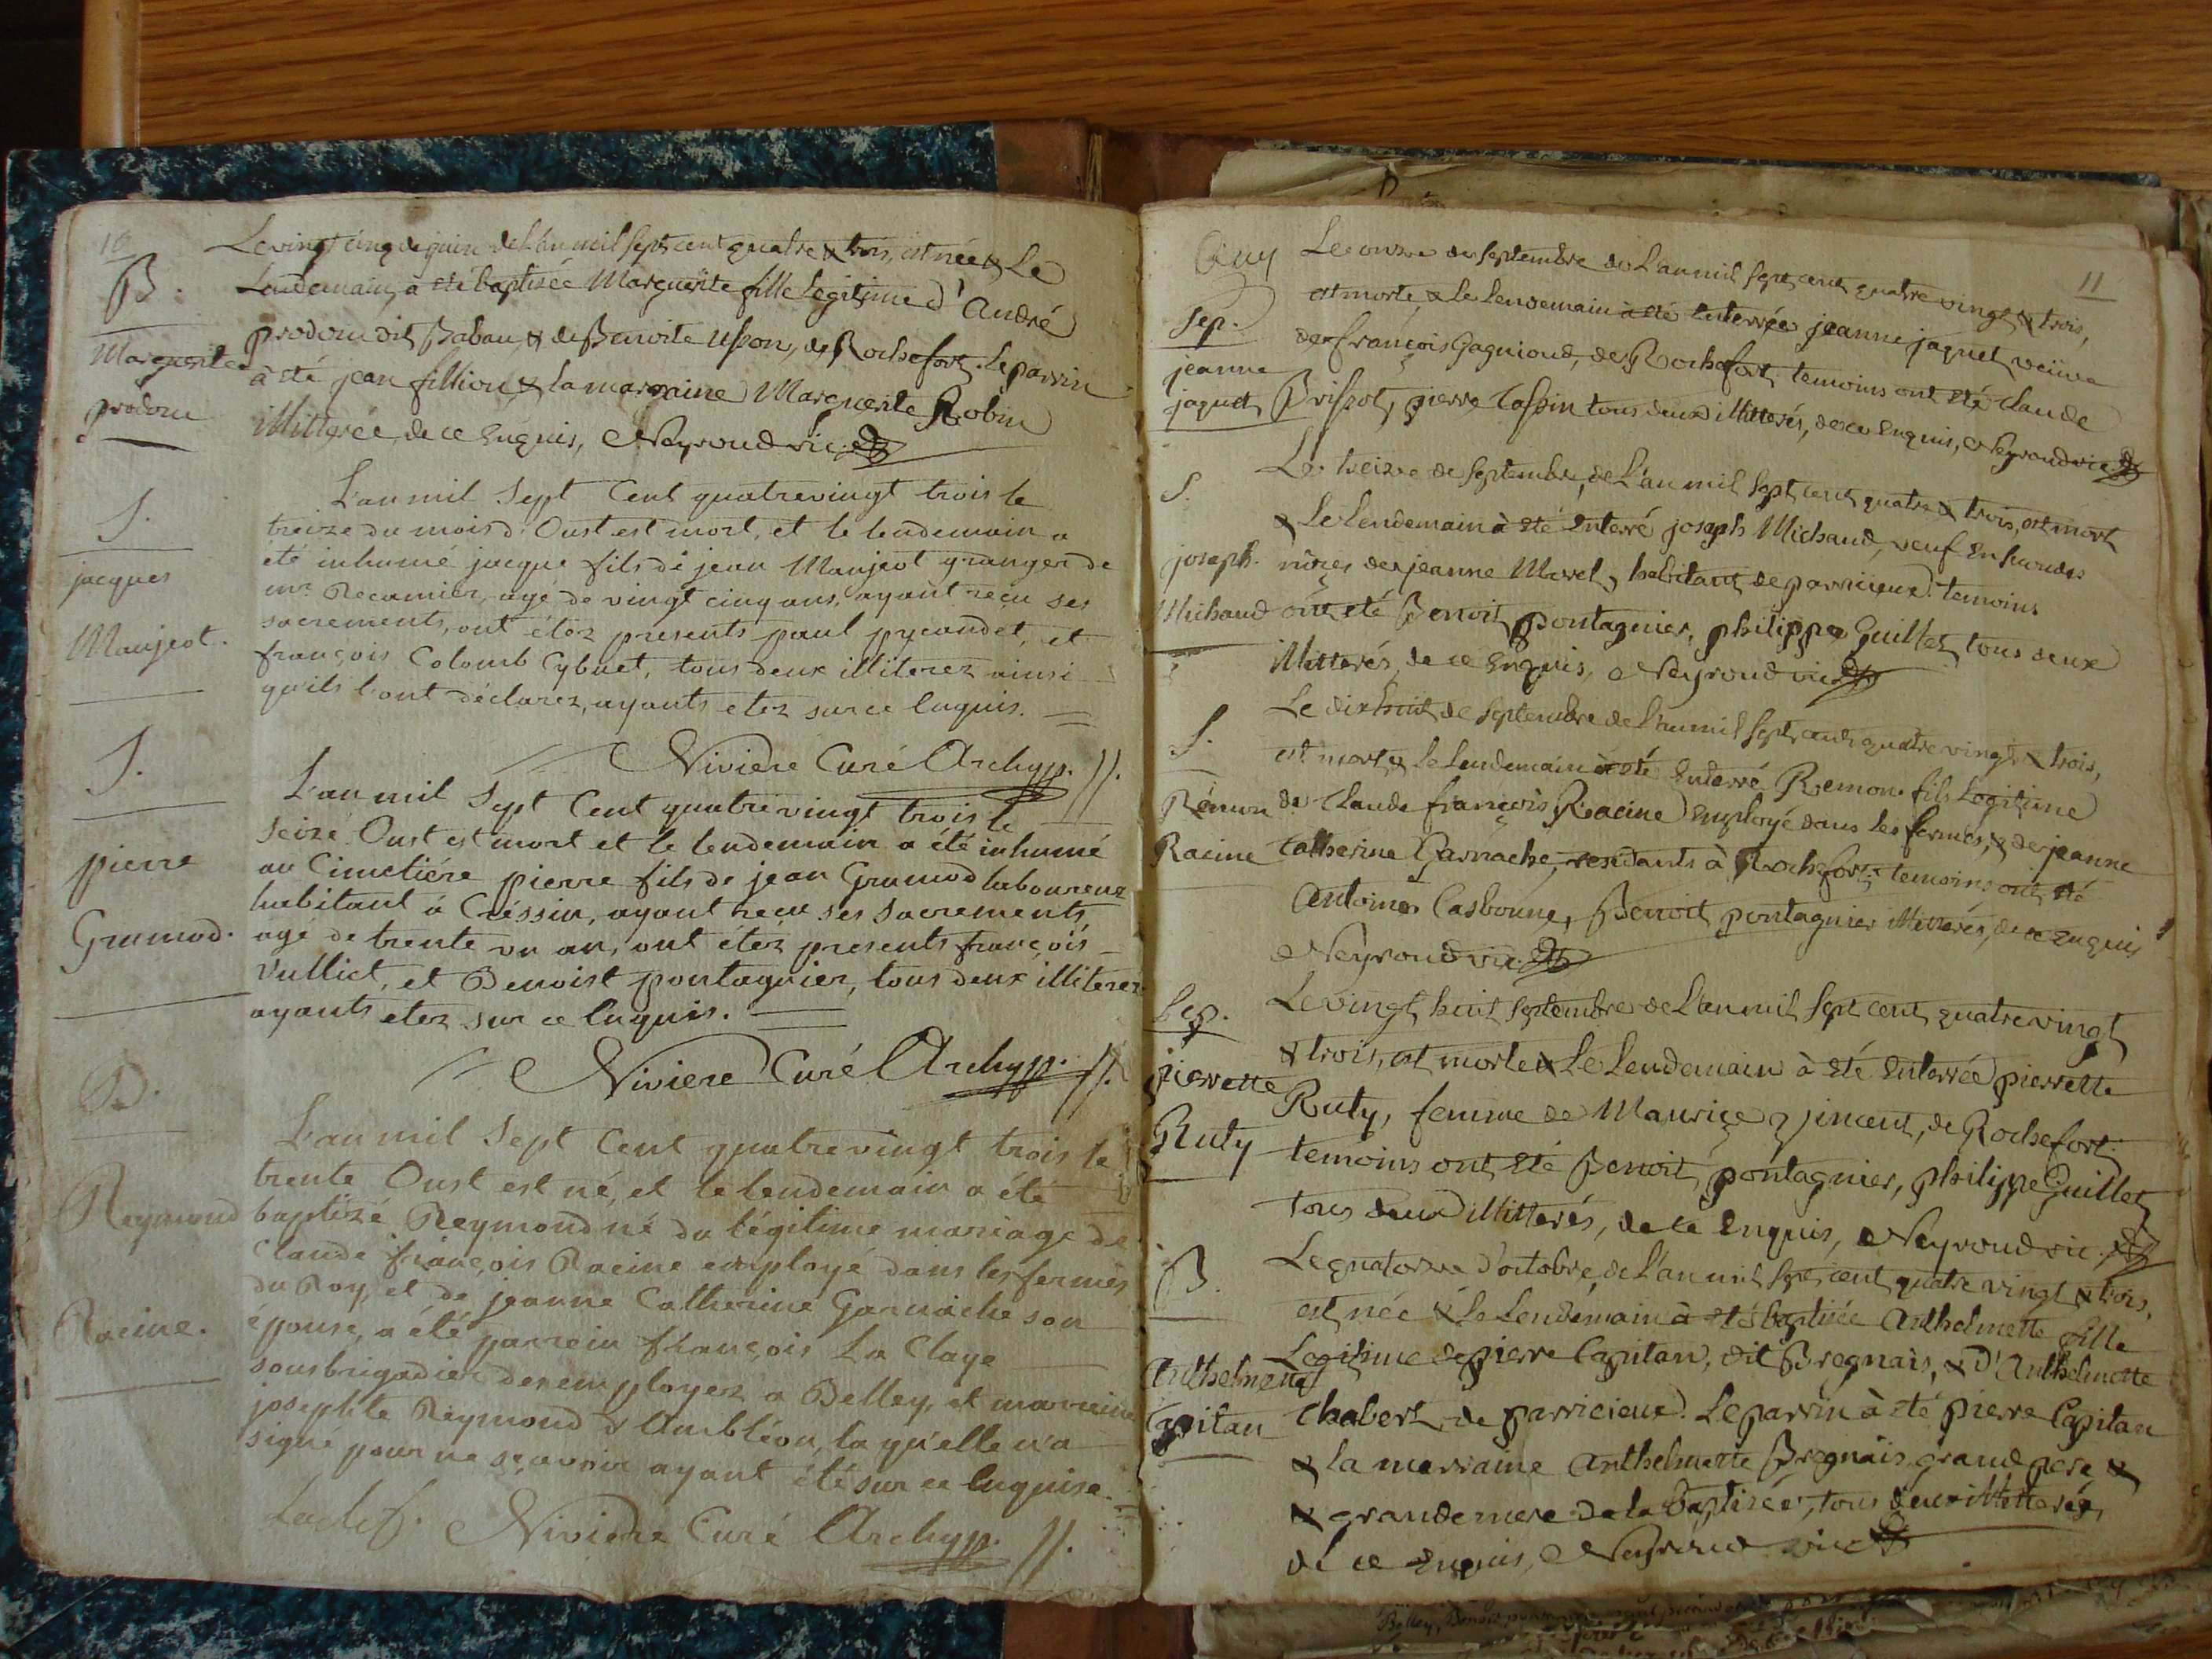 10
B.
Marguerite
prodom
Le vingt cinq de juin de L'an mil sept cent quatre & trois, est née & Le
Lendemain à été baptisée Marguerite fille Legitime d'André
prodom dit Babau, & de Benoite Usson, de Rochefort. Le parrin
à été jean fillion & la marraine Marguerite Robin
illitterée, de ce Enquis, Neyroud vic.
S.
jacques
Maujeot.
L'an mil Sept Cent quatrevingt trois le
treize du mois d'Oust est mort, et le lendemain a
eté inhumé jacque fils de jean Maujeot granger de
mr. Recamier, agé de vingt cinq ans, ayant recu ses
sacrements, ont étéz presents paul pycaudet, et
françois Colomb Cybuet, tous deux illiterez ainsi
qu'ils l'ont déclarez, ayants etez sur ce Enquis.
Niviere Curé Archyp.
S.
pierre
Grumod.
L'an mil Sept Cent quatrevingt trois le
seize Oust est mort et le lendemain a été inhumé
au Cimetiére pierre fils de jean Grumod laboureur
habitant à Créssin, ayant recu ses Sacrements,
agé de trente un an, ont étéz presents françois
Vulliet, et Benoist pontagnier, tous deux illiterez
ayants etez sur ce Enquis.
Niviere Curé Archyp.
B.
Reymond
Racine.
L'an mil Sept Cent quatrevingt trois le
trente Oust est né, et le lendemain a été
baptizé Reymond né du légitime mariage de
Claude françois Racine employé dans les fermes
du Roy, et de jeanne Catherine Garnache son
épouse, a été parrein françois La Claye
sousbrigadier des employez a Belley, et marreine
josephte Reymond d'Ambléon, la qu'elle n'a
signé pour ne sçavoir ayant été sur ce Enquise.
Niviere Curé Archyp.
11
Sep.
jeanne
jaquet
Le onze de septembre de L'an mil sept cent quatre vingt & trois,
est morte & Le Lendemain à été Enterrée jeanne jaquet veüve
de françois Gagnioud, de Rochefort, temoins ont été Claude
Brissot, pierre Cassin tous deux illitterés, de ce Enquis, Neyroud vic.
S.
joseph.
Michaud
Le treize de septembre, de L'an mil sept cent quatre & trois, est mort
& Le Lendemain à été Enterré joseph Michaud, veuf En secondes
nôces de jeanne Morel, habitant de parricieux. temoins
ont été Benoit pontagnier, philippe Guillet tous deux
illitterés, de ce Enquis, Neyroud vic.
S.
Rémon
Racine
Le dixhuit de septembre de L'an mil sept cent quatre vingt & trois,
est mort & Le Lendemain à été Enterré Remon fils Legitime
de Claude françois Racine Employé dans les fermes, & de jeanne
Catherine Garnache, residants à Rochefort; temoins ont été
Antoine Casbonne, Benoit pontagnier illitterés, de ce Enquis
Neyroud vic.
Sep.
pierrette
Ruty
Le vingt huit septembre de L'an mil sept cent quatrevingt
& trois, est morte & Le Lendemain à été Enterrée pierrette
Ruty, femme de Maurice Vincent, de Rochefort.
temoins ont été Benoit pontagnier, philippe Guillet
tous deux illitterés, de ce Enquis, Neyroud vic.
B.
Anthelmette
Capitan
Le quatorze d'octobre, de L'an mil sept cent quatre vingt & trois,
est née & Le Lendemain à été baptisée Anthelmette fille
Legitime de pierre Capitan, dit Bregnais, & D'Anthelmette
Chabert, de parricieux. Le parrin à été pierre Capitan
& la marraine Anthelmette Bregnais, grand pere &
& grande mere de la baptisée, tous deux illitterés,
de ce Enquis, Neyroud vic